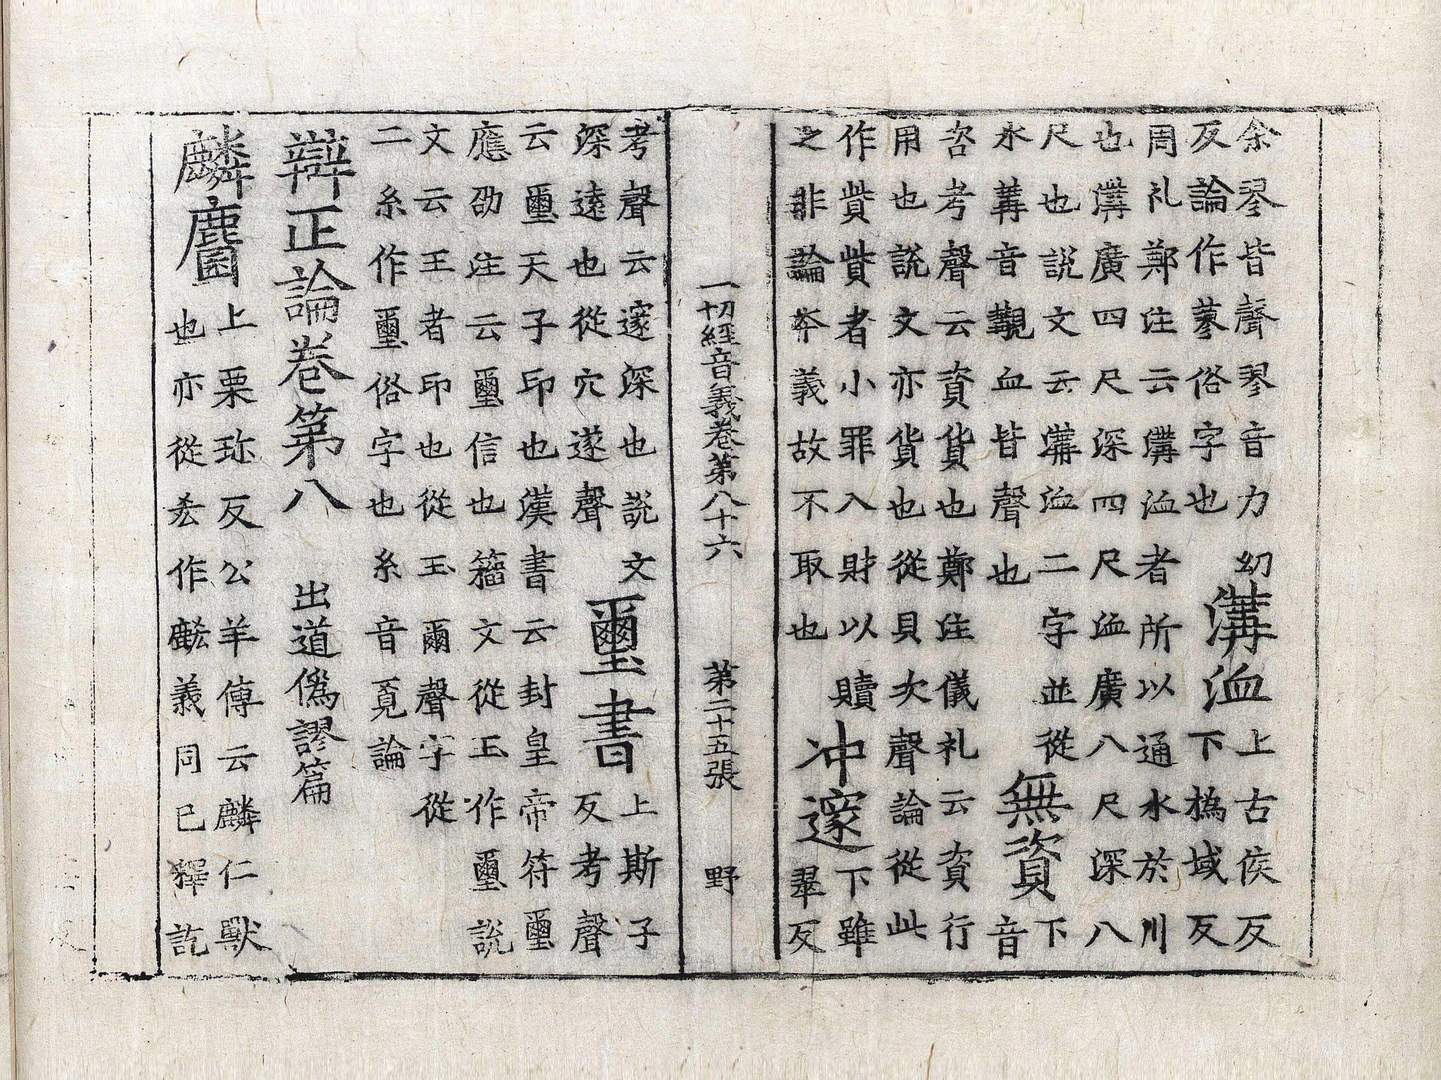 余翏皆聲翏音力幼
反論作蓼俗字也
溝洫
上古侯反
下㧑域反
周礼鄭注云溝洫者所以通水於川
也溝廣四尺深四尺洫廣八尺深八
尺也說文云溝洫二字並從
水冓音覯血皆聲也
無資
下
音
咨考聲云資貨也鄭注儀礼云資行
用也說文亦貨也從貝次聲論從此
作貲貲者小罪入財以贖
之非論夲義故不取也
冲邃
下雖
翠反
一切經音義卷第八十六 第二十五張 野
考聲云邃深也說文
深遠也從穴遂聲
璽書
上斯子
反考聲
云璽天子印也漢書云封皇帝符璽
應劭注云璽信也籒文從玉作璽說
文云王者印也從玉爾聲字從
二糸作璽俗字也糸音覓論
辯正論卷第八 出道偽謬篇
麟麕
上栗珎反公羊傳云麟仁獸
也亦從㚎作麮義同已釋訖